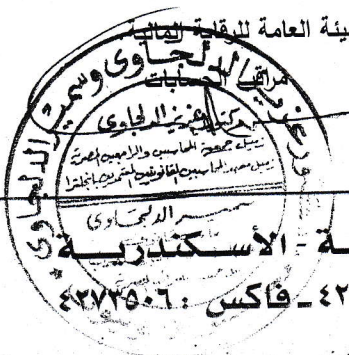 يئة العامة للرقابة المالية
مراقب الحسابات
وعزيز الدلجاوى وسمير الدلجاوى
مكتب عزيز الدلجاوى
زميل جمعية المحاسبين والمراجعين المصرية
زميل معهد المحاسبين القانونيين المعتمدين بإنجلترا
سمير الدلجاوى
ة - الأسكندرية
٤٢ - فاكس : ٤٢٧٢٥٠٦